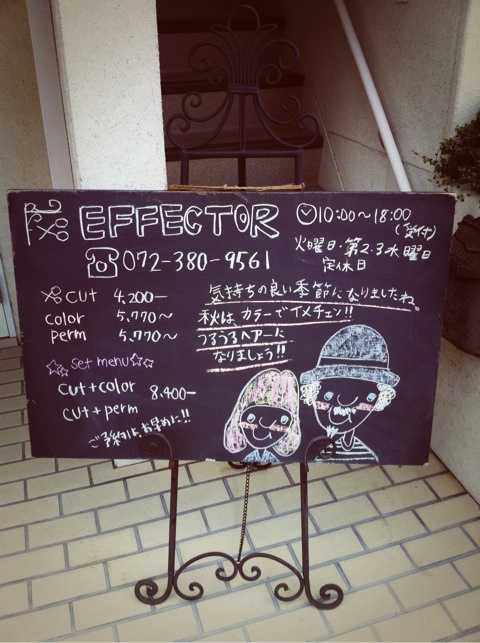 EFFECTOR
10:00〜18:00
(受付)
072-380-9561
火曜日・第2.3水曜日
定休日
cut 4,200−
color 5,770〜
perm 5,770〜
気持ちの良い季節になりましたね。
秋は カラーでイメチェン!!
つるつるヘアーに
なりましょう!!
☆☆ set menu ☆☆
cut+color 8,400−
cut+perm
ご予約はお早めに!!